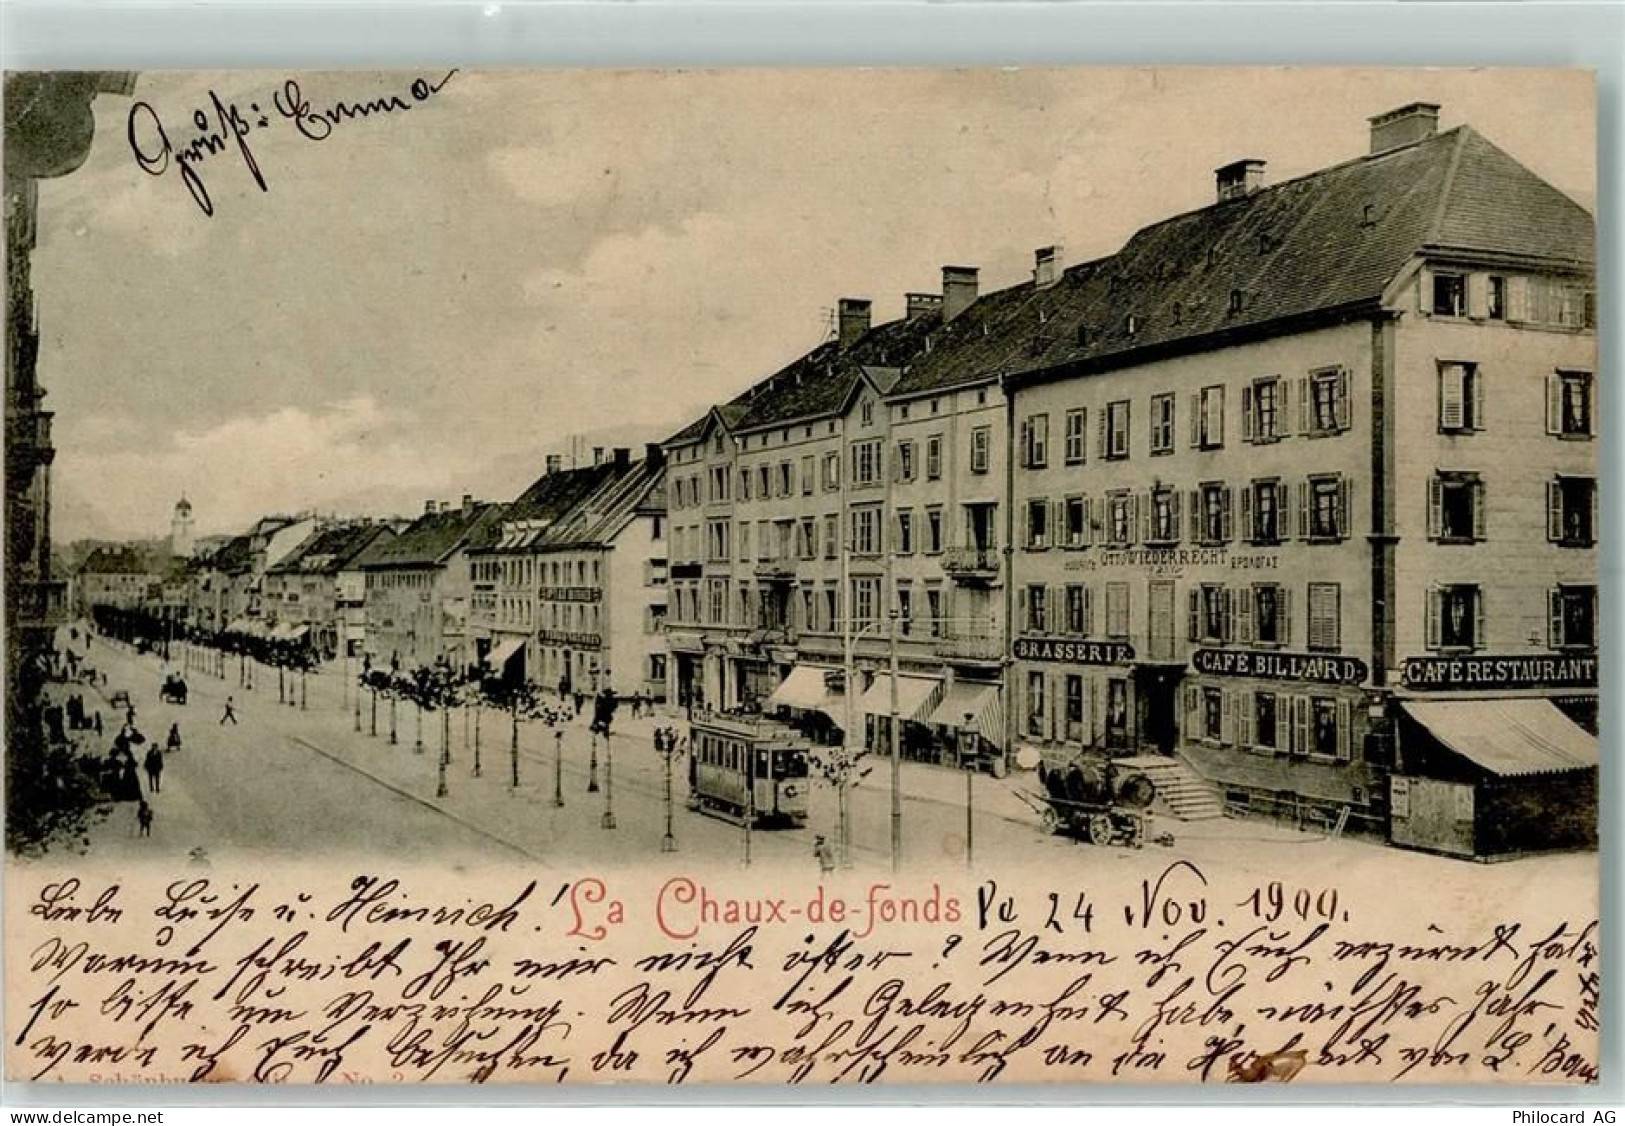 Gruß: Emma
OTTO WIEDERRECHT
BRASSERIE
CAFÉ BILLARD
CAFÉ RESTAURANT
C
Liebe Luise u. Heinrich! La Chaux-de-fonds 24 Nov. 1900.
Warum schreibt Ihr mir nicht öfter? Wenn ich Euch erzürnt habe
so bitte um Verzeihung. Wenn ich Gelegenheit habe nächstes Jahr
werde ich Euch besuchen, da ich wahrscheinlich an die Hochzeit von L.
No. 2
delcampe.net
Philocard AG